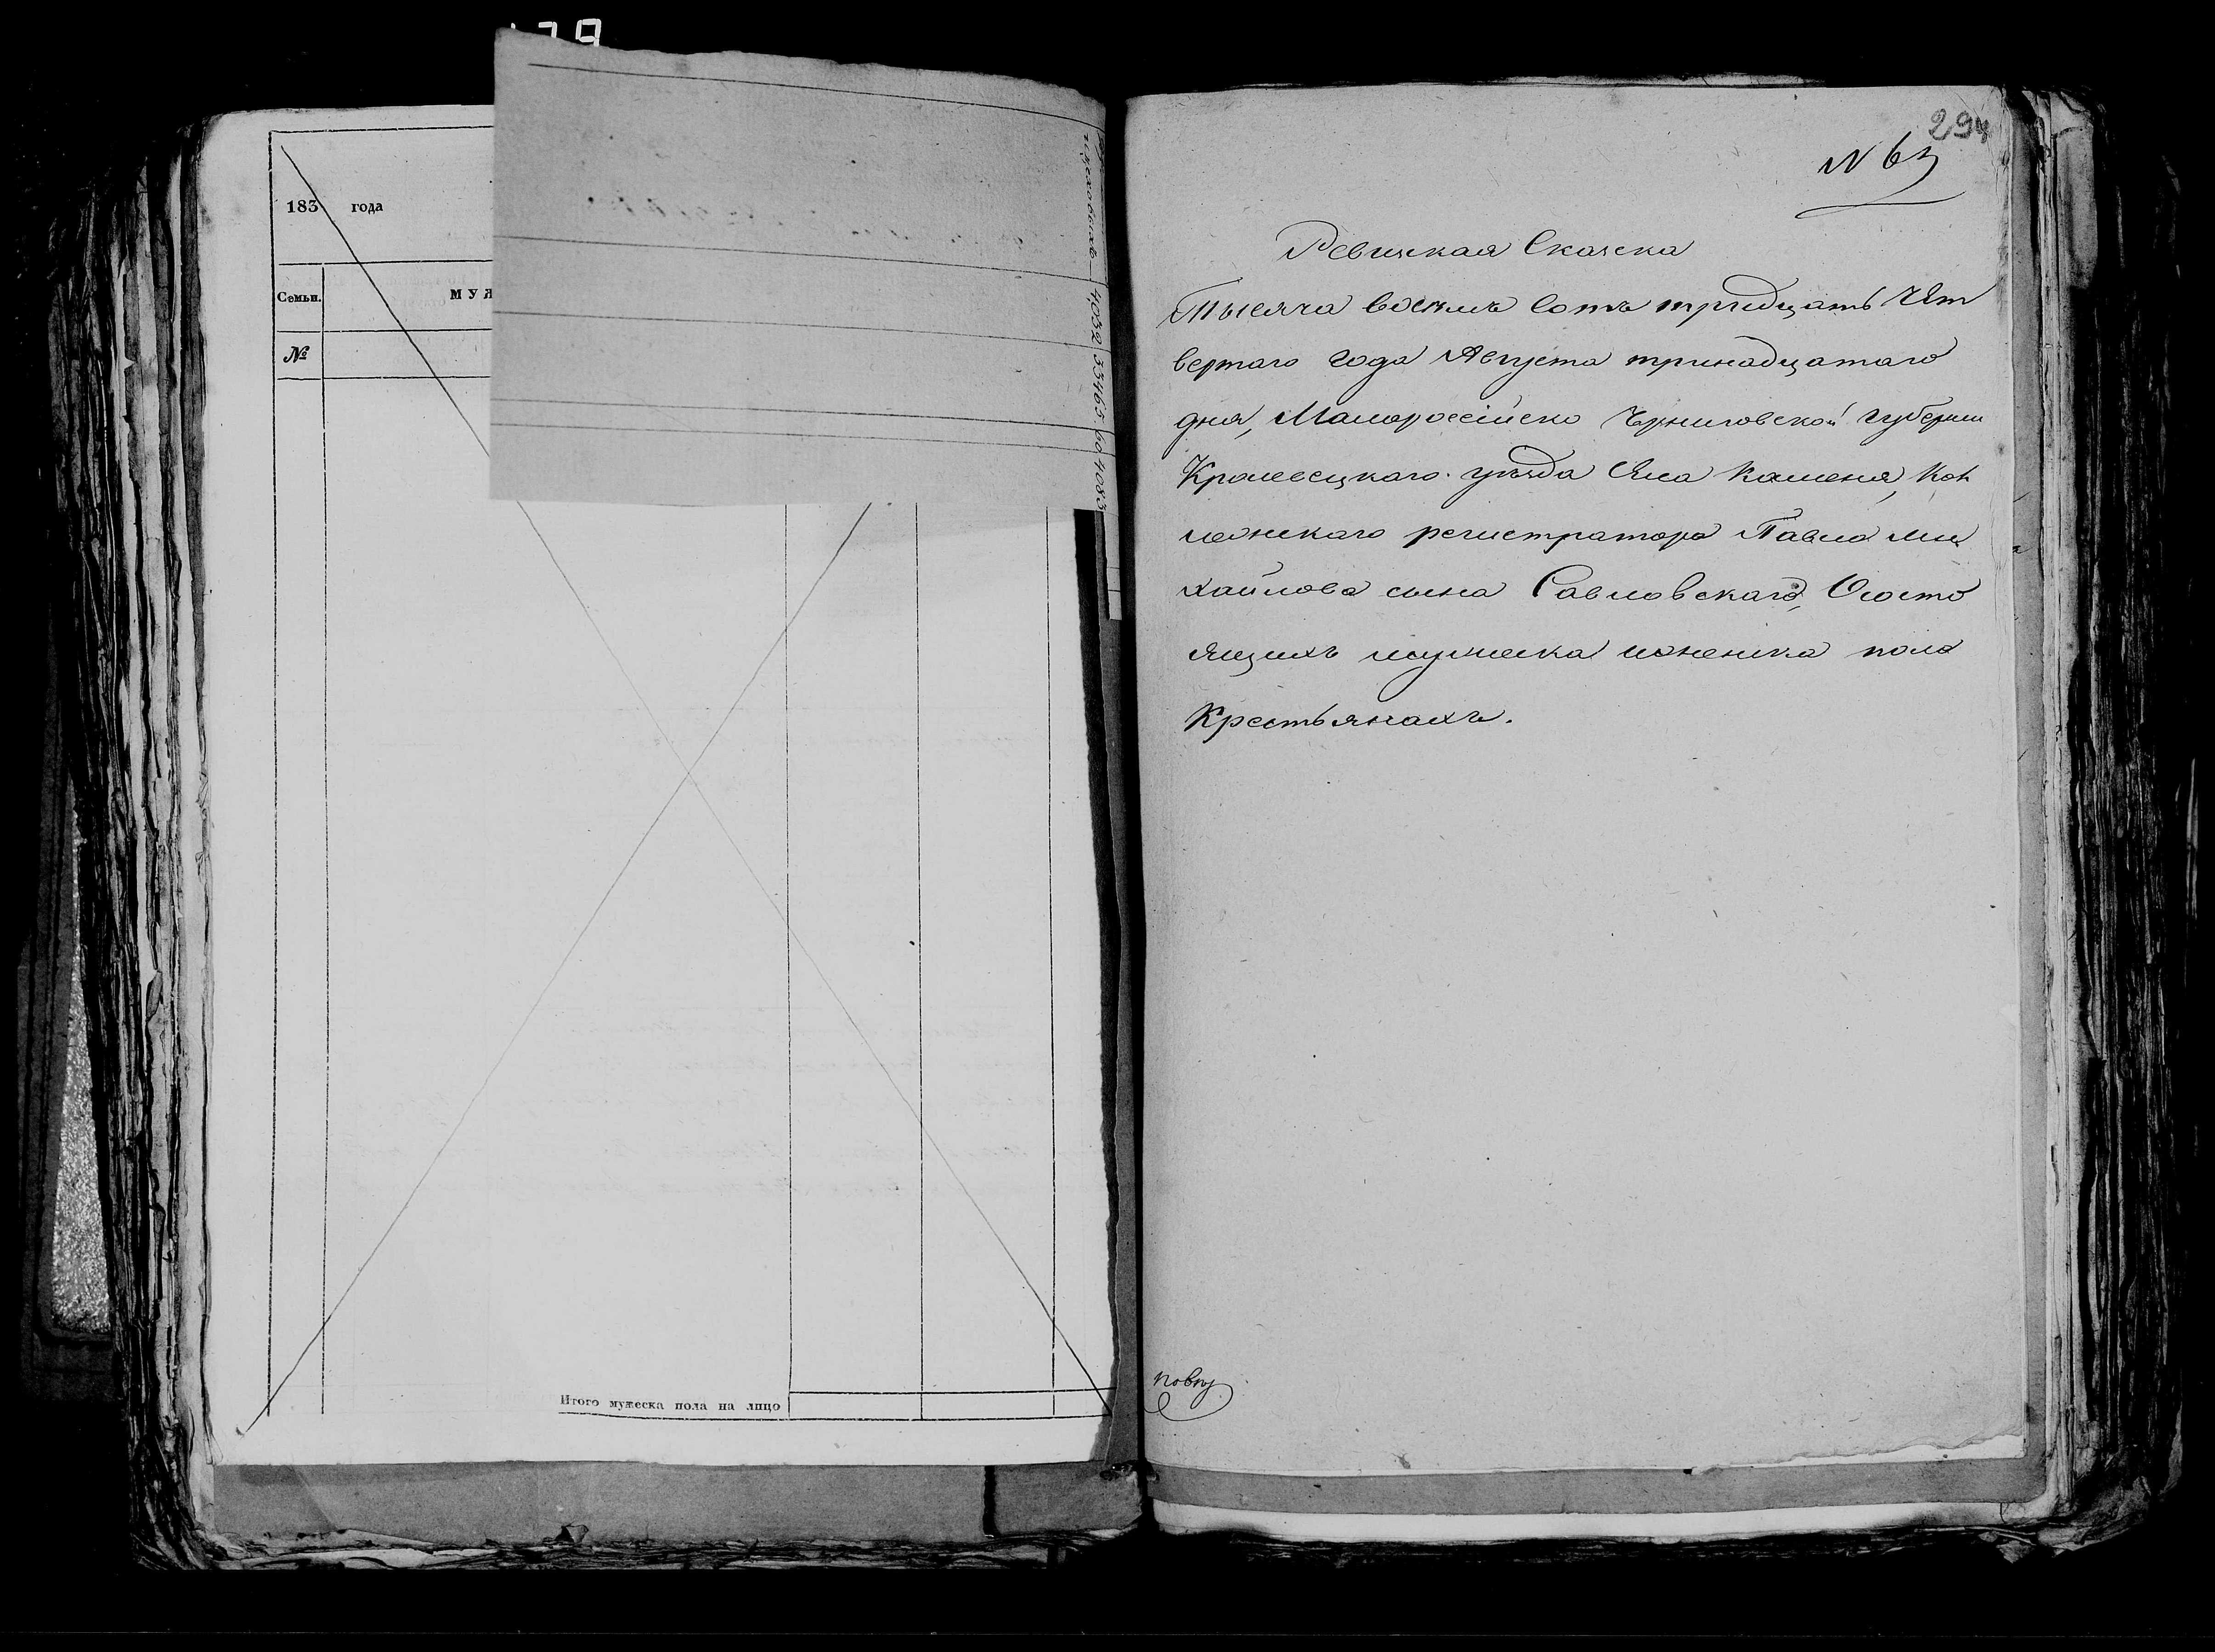 183 года
Семьи.
МУЖ
№
Итого мужеска пола на лицо
4032 33465 60 4083
294
N 63
Ревизкая Сказка
Тысяча восемь сотъ тридцать чет
вертаго года Августа тринадцатаго
дня, Малороссійско Черниговской губернии
Кролевецкаго уезда Села Каменя, Кол
лежскаго регистратора Павла Ми
хайлова сына Савловскаго, О состо
ящихъ мужеска и женска пола
Крестьянахъ.